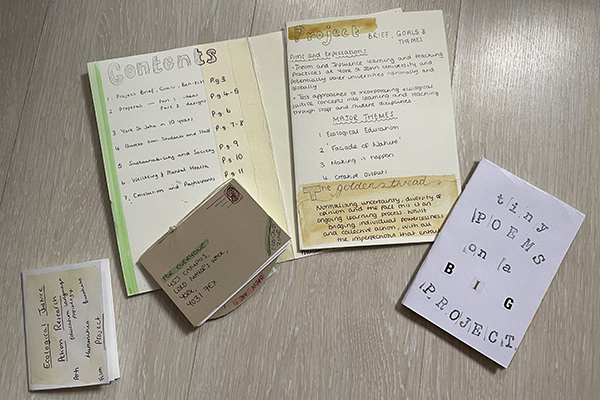 Contents
1. Project Brief, Goals,
2. Proposal — Part 1 Ideas
Part 2 designs
3. York St John in 10 years!
4. Quotes from Students and Staff
5. Sustainability and Society
6. Wellbeing & Mental Health
7. Conclusion and Participants
Pg 3
Pg 4-5
Pg 6
Pg 7-8
Pg 9
Pg 10
Pg 11
Project BRIEF, GOALS &
THEMES
Aims and Expectations
• Inform and Influence learning and teaching
Practices at York St John University and
potentially other universities nationally and
globally
• Test approaches to incorporating ecological
justice concepts into learning and teaching
through staff and student disciplines
MAJOR THEMES
1 Ecological Education
2 "Facade of Nature"
3 Making it happen
4 Creative outputs
The golden thread
Normalizing uncertainty, diversity of
opinion and the fact this is an
ongoing learning process, whilst
bridging individual powerlessness
and collective action, with all
the imperfections that entails
FOR EVERYONE
YSJ CAMPUS,
LORD MAYOR'S WALK,
YORK,
YO31 7EX
Ecological Justice
Action Research
Education Language
Psychology
Arts Humanities Business
Film Project
tiny
POEMS
on a
BIG
PROJECT